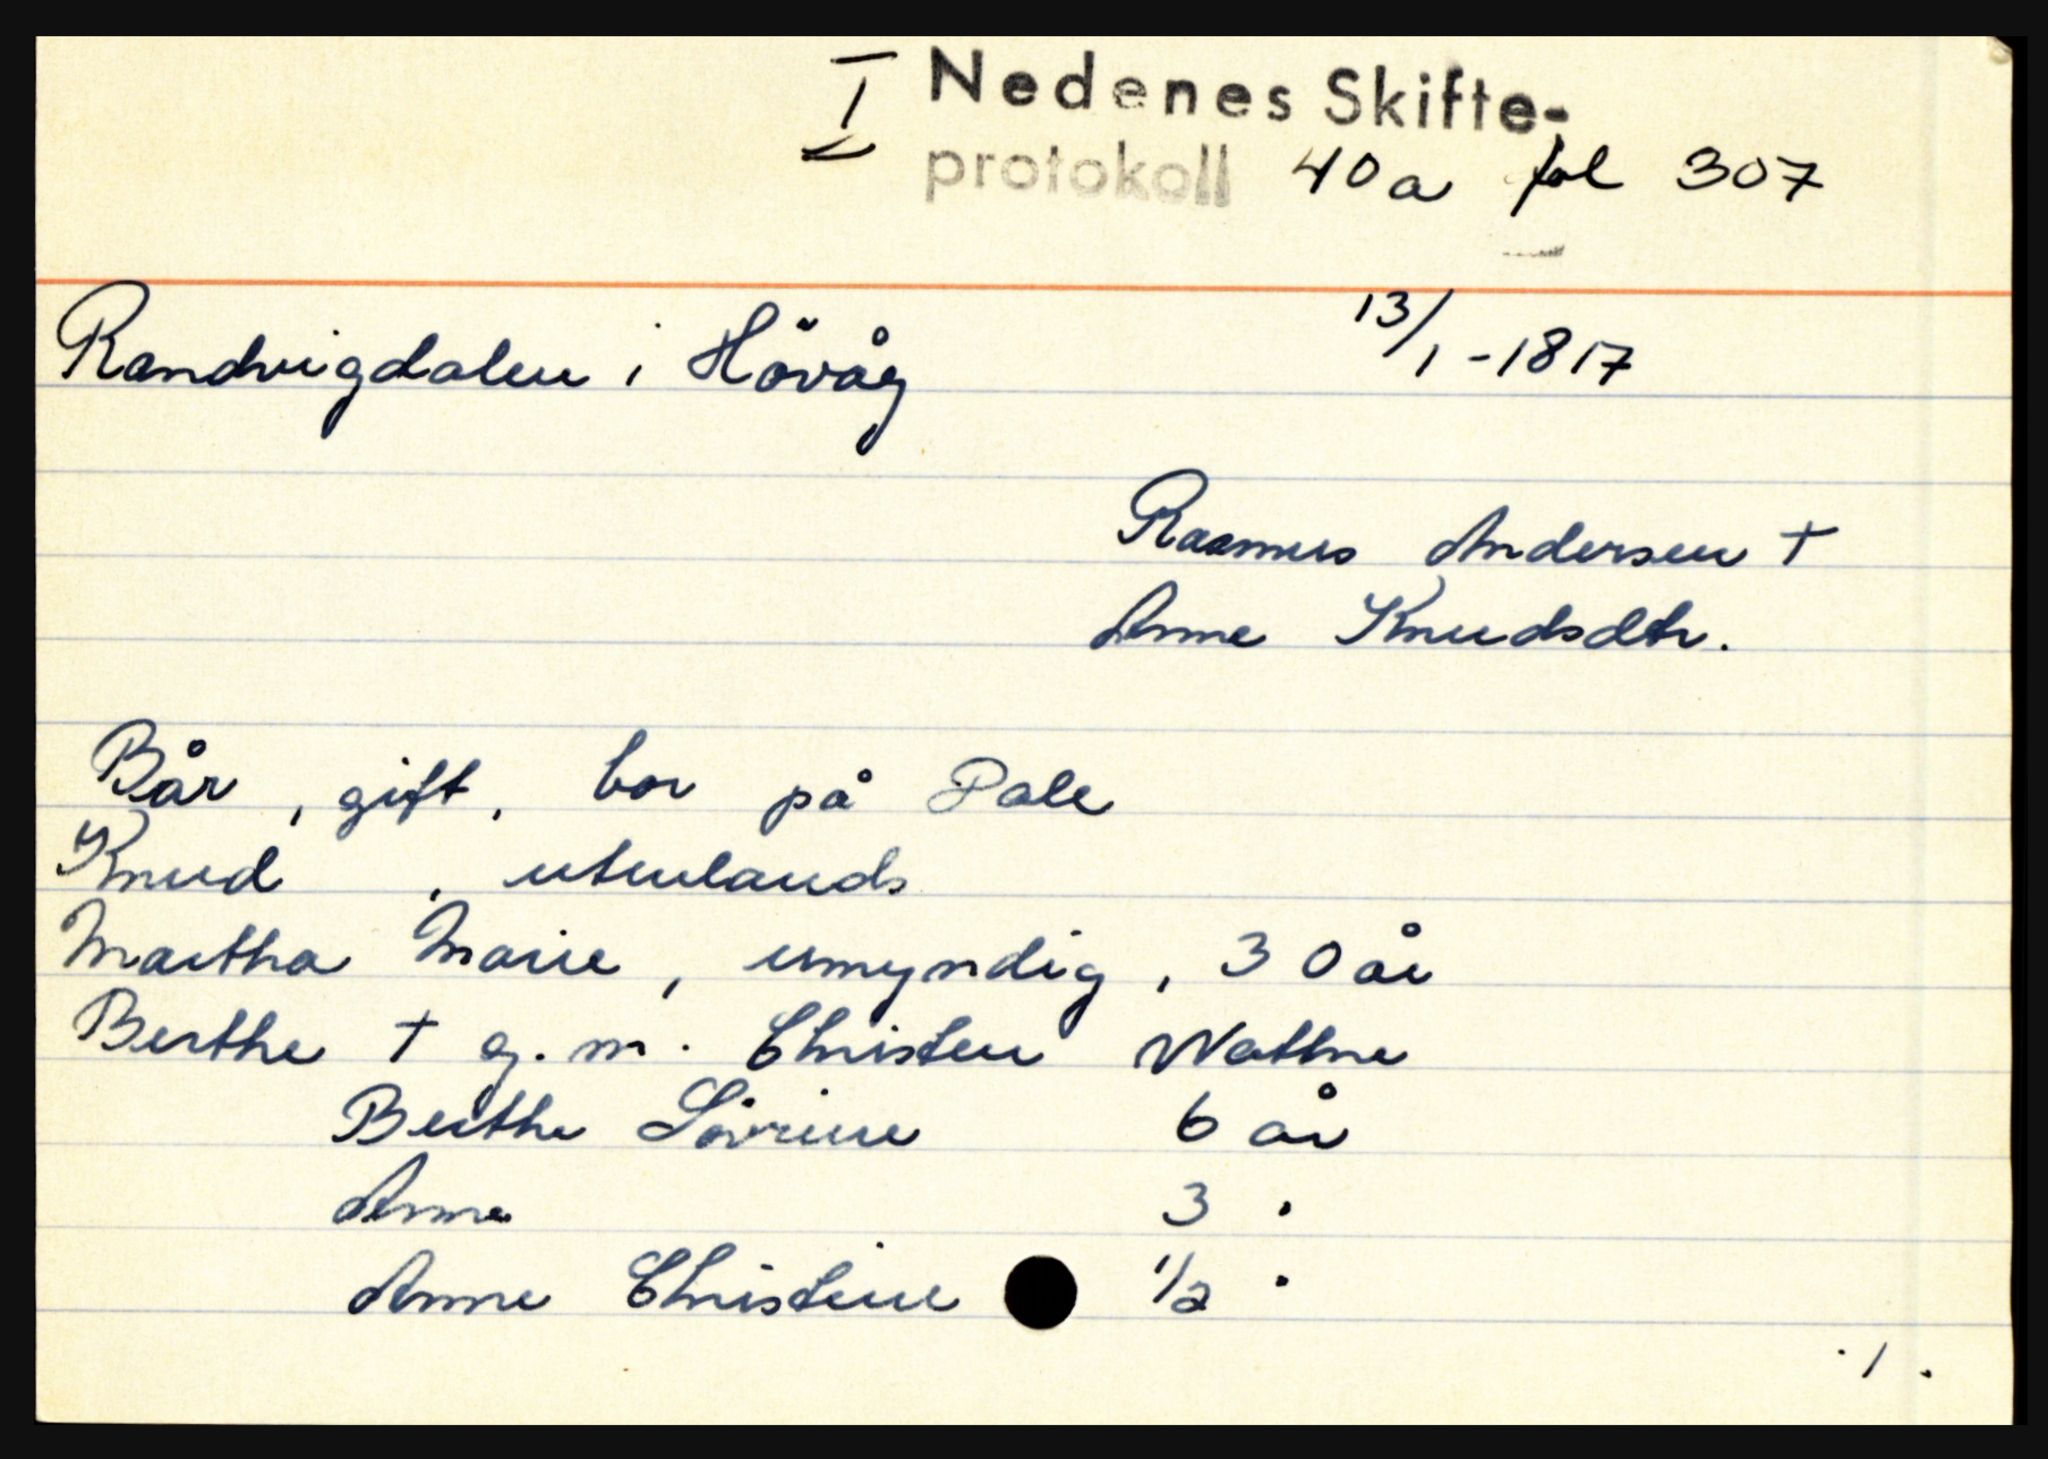 I Nedenes Skifte-
protokoll 40a fol 307
Randvigdalen i Hövåg 13/1-1817
Rasmus Andersen †
Anne Knudsdtr.
Bår, gift, bor på Pale
Knud , utenlands
Martha Marie, umyndig, 30 år
Berthe † g.m. Christen Watne
Berthe Lovrine 6 år
Anne 3 "
Anne Christine 1/2 "
./.